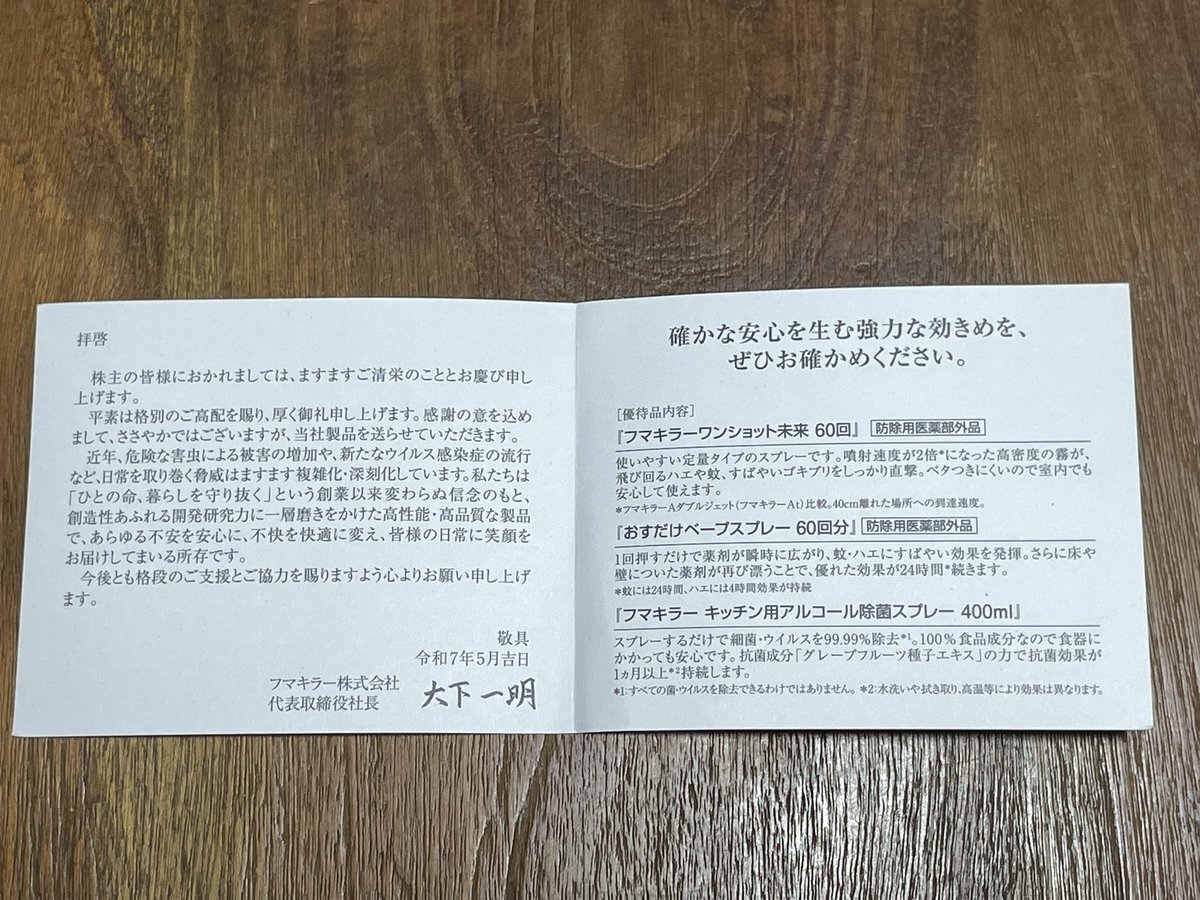 拝啓
株主の皆様におかれましては、ますますご清栄のこととお慶び申し
上げます。
平素は格別のご高配を賜り、厚く御礼申し上げます。感謝の意を込め
まして、ささやかではございますが、当社製品を送らせていただきます。
近年、危険な害虫による被害の増加や、新たなウイルス感染症の流行
など、日常を取り巻く脅威はますます複雑化・深刻化しています。私たちは
「ひとの命、暮らしを守り抜く」という創業以来変わらぬ信念のもと、
創造性あふれる開発研究力に一層磨きをかけた高性能・高品質な製品
で、あらゆる不安を安心に、不快を快適に変え、皆様の日常に笑顔を
お届けしてまいる所存です。
今後とも格段のご支援とご協力を賜りますよう心よりお願い申し上げ
ます。
敬具
令和7年5月吉日
フマキラー株式会社
代表取締役社長 大下一明
確かな安心を生む強力な効きめを、
ぜひお確かめください。
［優待品内容］
『フマキラーワンショット未来 60回』 防除用医薬部外品
使いやすい定量タイプのスプレーです。噴射速度が2倍*になった高密度の霧が、
飛び回るハエや蚊、すばやいゴキブリをしっかり直撃。ベタつきにくいので室内でも
安心して使えます。
*フマキラーAダブルジェット(フマキラーAt)比較。40cm離れた場所への到達速度。
『おすだけベープスプレー 60回分』 防除用医薬部外品
1回押すだけで薬剤が瞬時に広がり、蚊・ハエにすばやい効果を発揮。さらに床や
壁についた薬剤が再び漂うことで、優れた効果が24時間*続きます。
*蚊には24時間、ハエには4時間効果が持続
『フマキラー キッチン用アルコール除菌スプレー 400ml』
スプレーするだけで細菌・ウイルスを99.99%除去*1。100%食品成分なので食器に
かかっても安心です。抗菌成分「グレープフルーツ種子エキス」の力で抗菌効果が
1ヵ月以上*2持続します。
*1:すべての菌・ウイルスを除去できるわけではありません。 *2:水洗いや拭き取り、高温等により効果は異なります。